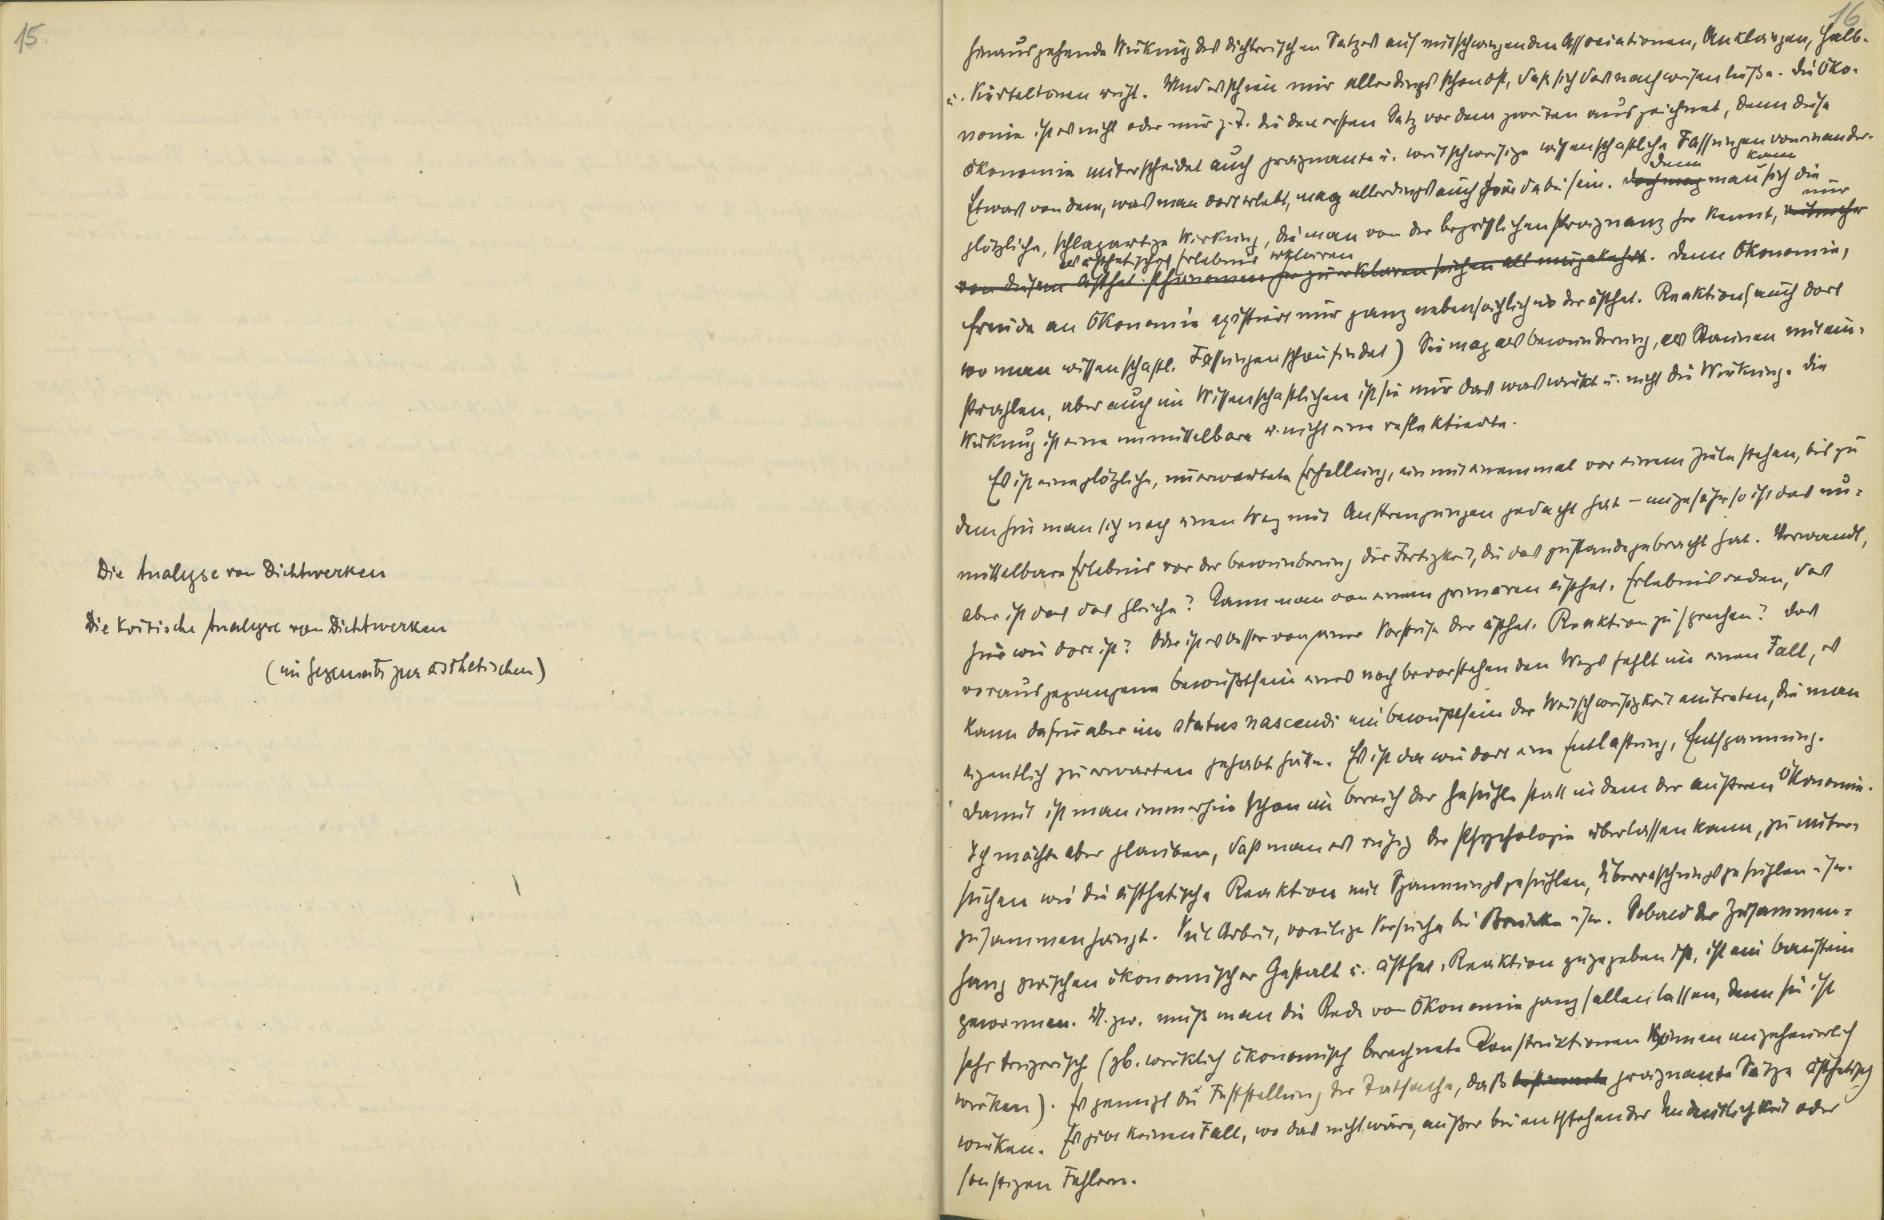 15.
Die Analyse von Dichtwerken
Die kritische Analyse von Dichtwerken
(im Gegensatz zur ästhetischen)
16
hinausgehende Wirkung des dichterischen Satzes auf mitschwingenden Associationen, Anklängen, Halb-
u. Vierteltönen ruht. Und es schien mir allerdings schon oft, daß sich das nachweisen ließe. Die Öko-
nomie ist es nicht oder nur z. T. die den ersten Satz vor dem zweiten auszeichnet, denn diese
Ökonomie unterscheidet auch prägnante u. weitschweifige wissenschaftliche Fassungen voneinander.
denn kann
Etwas von dem, was man dort erlebt, mag allerdings auch hier dabei sein. doch mag man sich die
nur
plötzliche, schlagartige Wirkung, die man von der begrifflichen Prägnanz her kennt,
als ästhetisches Erlebnis erklären
von diesem ästhet. Phänomen her zu erklären suchen als umgekehrt. Denn Ökonomie,
Freude an Ökonomie existiert nur ganz nebensächlich in der ästhet. Reaktion (auch dort
wo man wissenschaftl. Fassungen schön findet) Sie mag als Bewunderung, als Staunen mitein-
strahlen, aber auch im Wissenschaftlichen ist sie nur das was wirkt u. nicht die Wirkung. Die
Wirkung ist eine unmittelbare u. nicht eine reflektierte.
Es ist eine plötzliche, unerwartete Erhellung, ein mit einemmal vor einem Ziele stehen, bis zu
dem hin man sich noch einen Weg mit Anstrengungen gedacht hat – ungefähr so ist das un-
mittelbare Erlebnis vor der Bewunderung der Fertigkeit, die das zustandegebracht hat. Verwandt,
aber ist das das Gleiche? Kann man von einem primären ästhet. Erlebnis reden, das
hier wie dort ist? Oder ist es besser von einer Vorstufe der ästhet. Reaktion zu sprechen? Das
vorausgegangene Bewußtsein eines noch bevorstehenden Wegs fehlt im einen Fall, es
kann dafür aber im status nascendi ein Bewußtsein der Weitschweifigkeit eintreten, die man
eigentlich zu erwarten gehabt hätte. Es ist da wie dort eine Entlastung, Entspannung.
Damit ist man immerhin schon im Bereich der Gefühle statt in dem der äußeren Ökonomie.
Ich möchte aber glauben, daß man es ruhig der Psychologie überlassen kann, zu unter-
suchen wie die ästhetische Reaktion mit Spannungsgefühlen, Überraschungsgefühlen usw.
zusammenhängt. Viel Arbeit, voreilige Versuche bei usw. Sobald der Zusammen-
hang zwischen ökonomischer Gestalt u. ästhet. Reaktion zugegeben ist, ist ein Baustein
gewonnen. U. zw. muß man die Rede von Ökonomie ganz fallen lassen, denn sie ist
sehr trügerisch (zb. wirklich ökonomisch berechnete Konstruktionen können ungeheuerlich
wirken). Es genügt die Feststellung der Tatsache, daß bestimmte prägnante Sätze ästhetisch
wirken. Es gibt keinen Fall, wo das nicht wäre, außer bei entstehender Undeutlichkeit oder
sonstigen Fehlern.